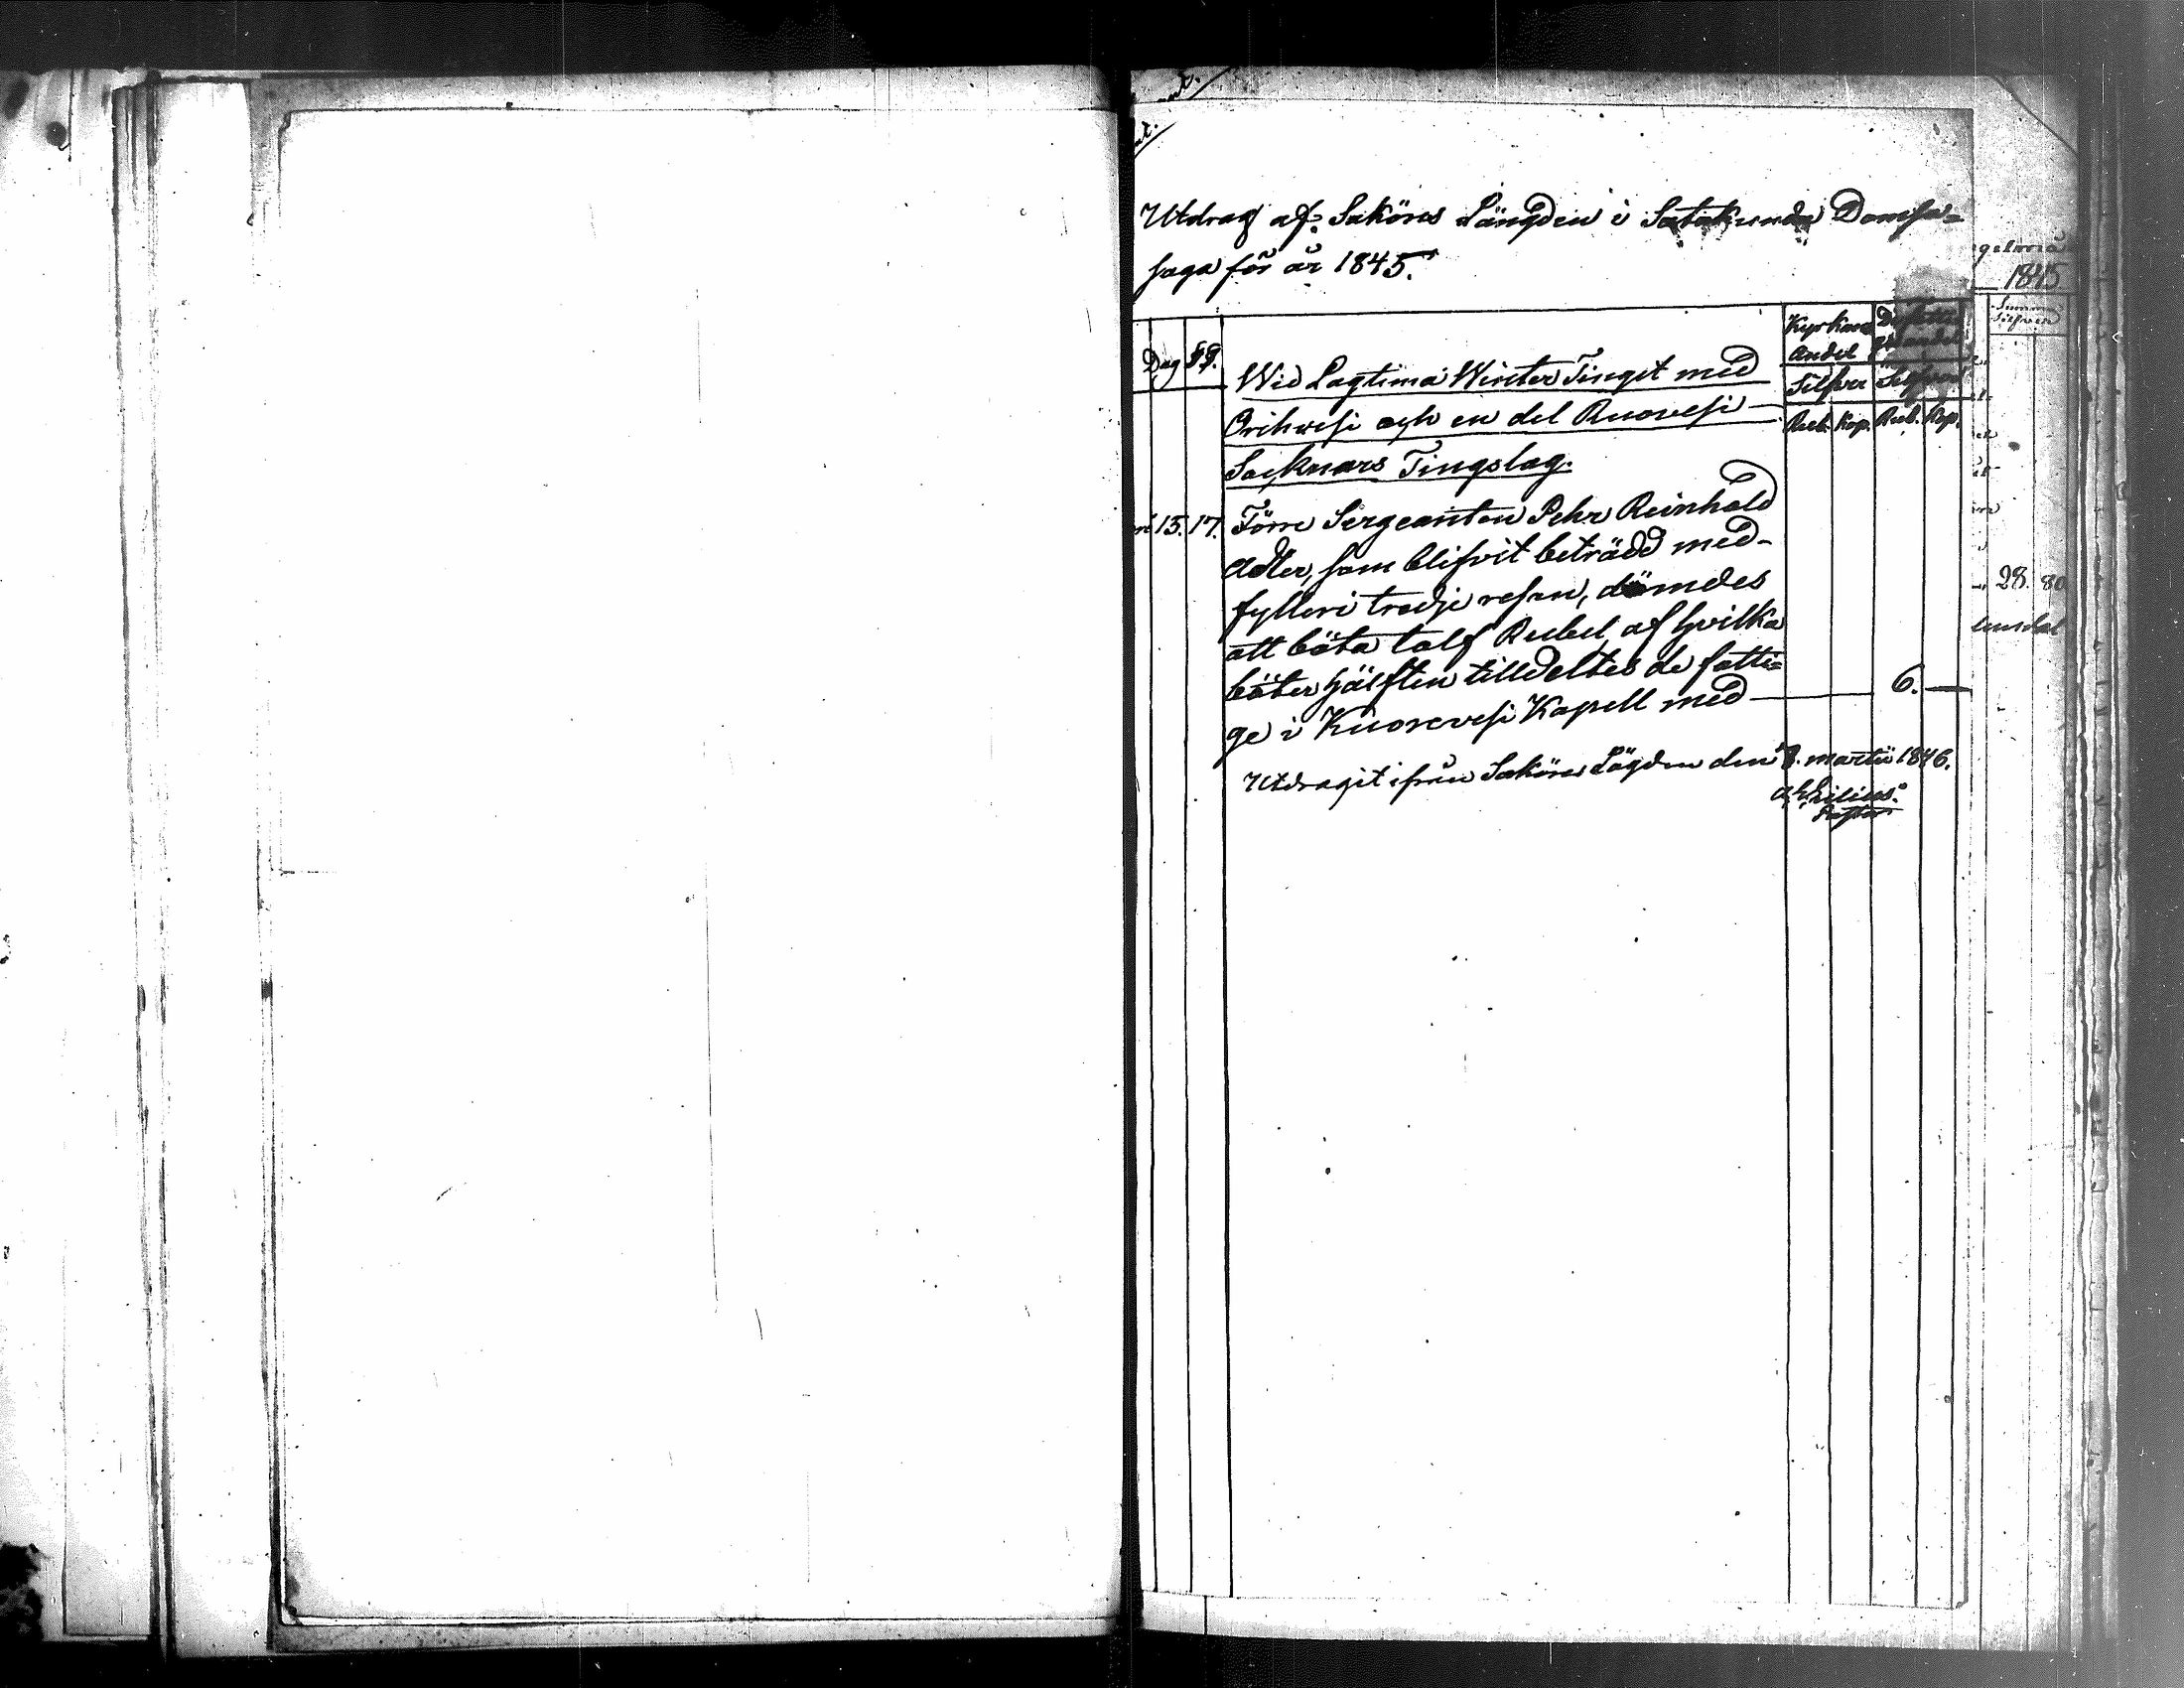 Utdrag af Saköres Längden i Satakunda Domsa-
saga för år 1845.
1845
Summa
Silfver
Dag §§. Wid Lagtima Winter Tinget med
Orihvesi och en del Ruovesi
Socknars Tingslag.
Kyrkans De fatti
andel gas andel
Silfver Silfver
Rub. Kop. Rub. Kop.
ri 15. 17. Förre Sergeanten Pehr Reinhold
Adler, som blifvit beträdd med
fylleri tredje resan, dömdes
att böta tolf Rubel, af hvilka
böter hälften tilldeltes de fatti=
ge i Kuorevesi Kapell med — 6. —
28. 80
Utdragit ifrån Saköres Lägden den 8. martii 1846.
Lilius.
Pastor